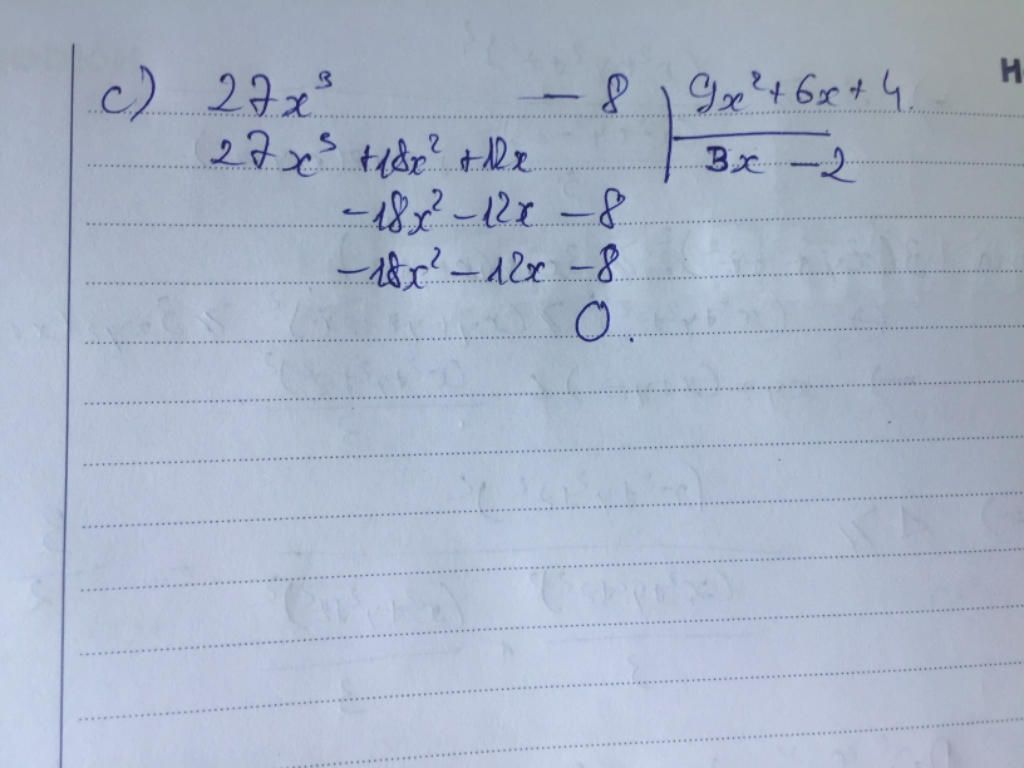 c) 27x³ - 8 | 9x² + 6x + 4.
27x³ + 18x² + 12x | 3x - 2
-18x² - 12x - 8
-18x² - 12x - 8
0.